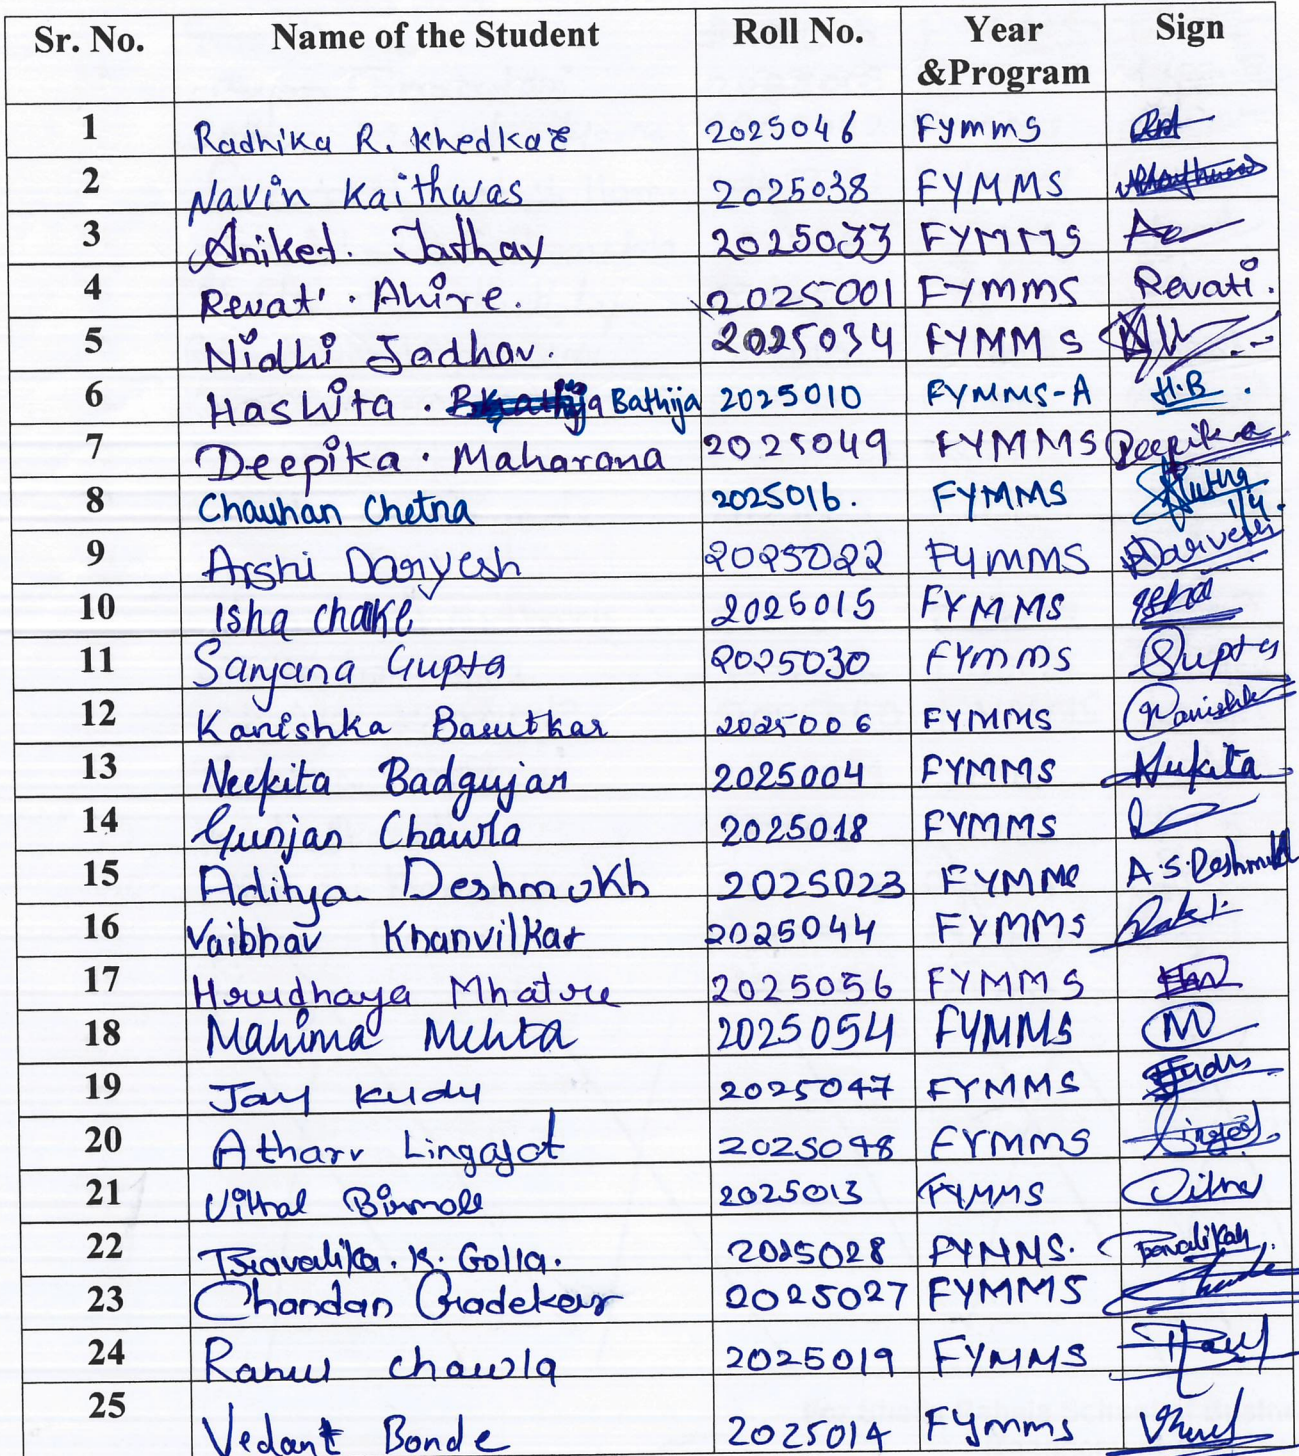 Sr. No. Name of the Student Roll No. Year &Program Sign
1 Radhika R. Khedkar 2025046 Fymms
2 Navin Kaithwas 2025038 FYMMS
3 Aniket. Jathav 2025033 FYMMS
4 Revati . Ahire. 2025001 FYMMS Revati.
5 Nidhi Jadhav. 2025034 FYMMS
6 Hashita . Bathija 2025010 FYMMS-A H.B.
7 Deepika . Maharana 2025049 FYMMS Deepika
8 Chauhan Chetna 2025016. FYMMS
9 Arshi Darvesh 2025022 FYMMS Darvesh
10 Isha Chake 2025015 FYMMS Isha
11 Sanjana Gupta 2025030 FYMMS Gupta
12 Kanishka Basutkar 2025006 FYMMS Kanishka
13 Neekita Badgujar 2025004 FYMMS
14 Gunjan Chawla 2025018 FYMMS
15 Aditya Deshmukh 2025023 FYMMS A.S.Deshmukh
16 Vaibhav Khanvilkar 2025044 FYMMS
17 Hrudhaya Mhatre 2025056 FYMMS
18 Mahima Mehta 2025054 FYMMS M
19 Jay Kudu 2025047 FYMMS
20 Atharv Lingayat 2025048 FYMMS
21 Vithal Birmole 2025013 FYMMS
22 Travalika. K. Golla. 2025028 FYMMS.
23 Chandan Gradekar 2025027 FYMMS
24 Rahul Chawla 2025019 FYMMS
25 Vedant Bonde 2025014 FYmms